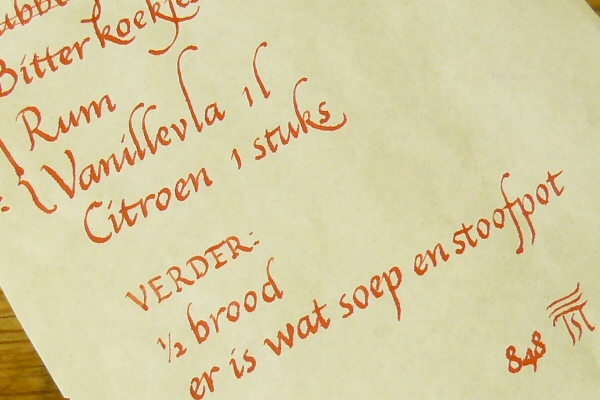 Bitterkoekjes
Rum
Vanillevla 1 l
Citroen 1 stuks
VERDER:
½ brood
er is wat soep en stoofpot
848